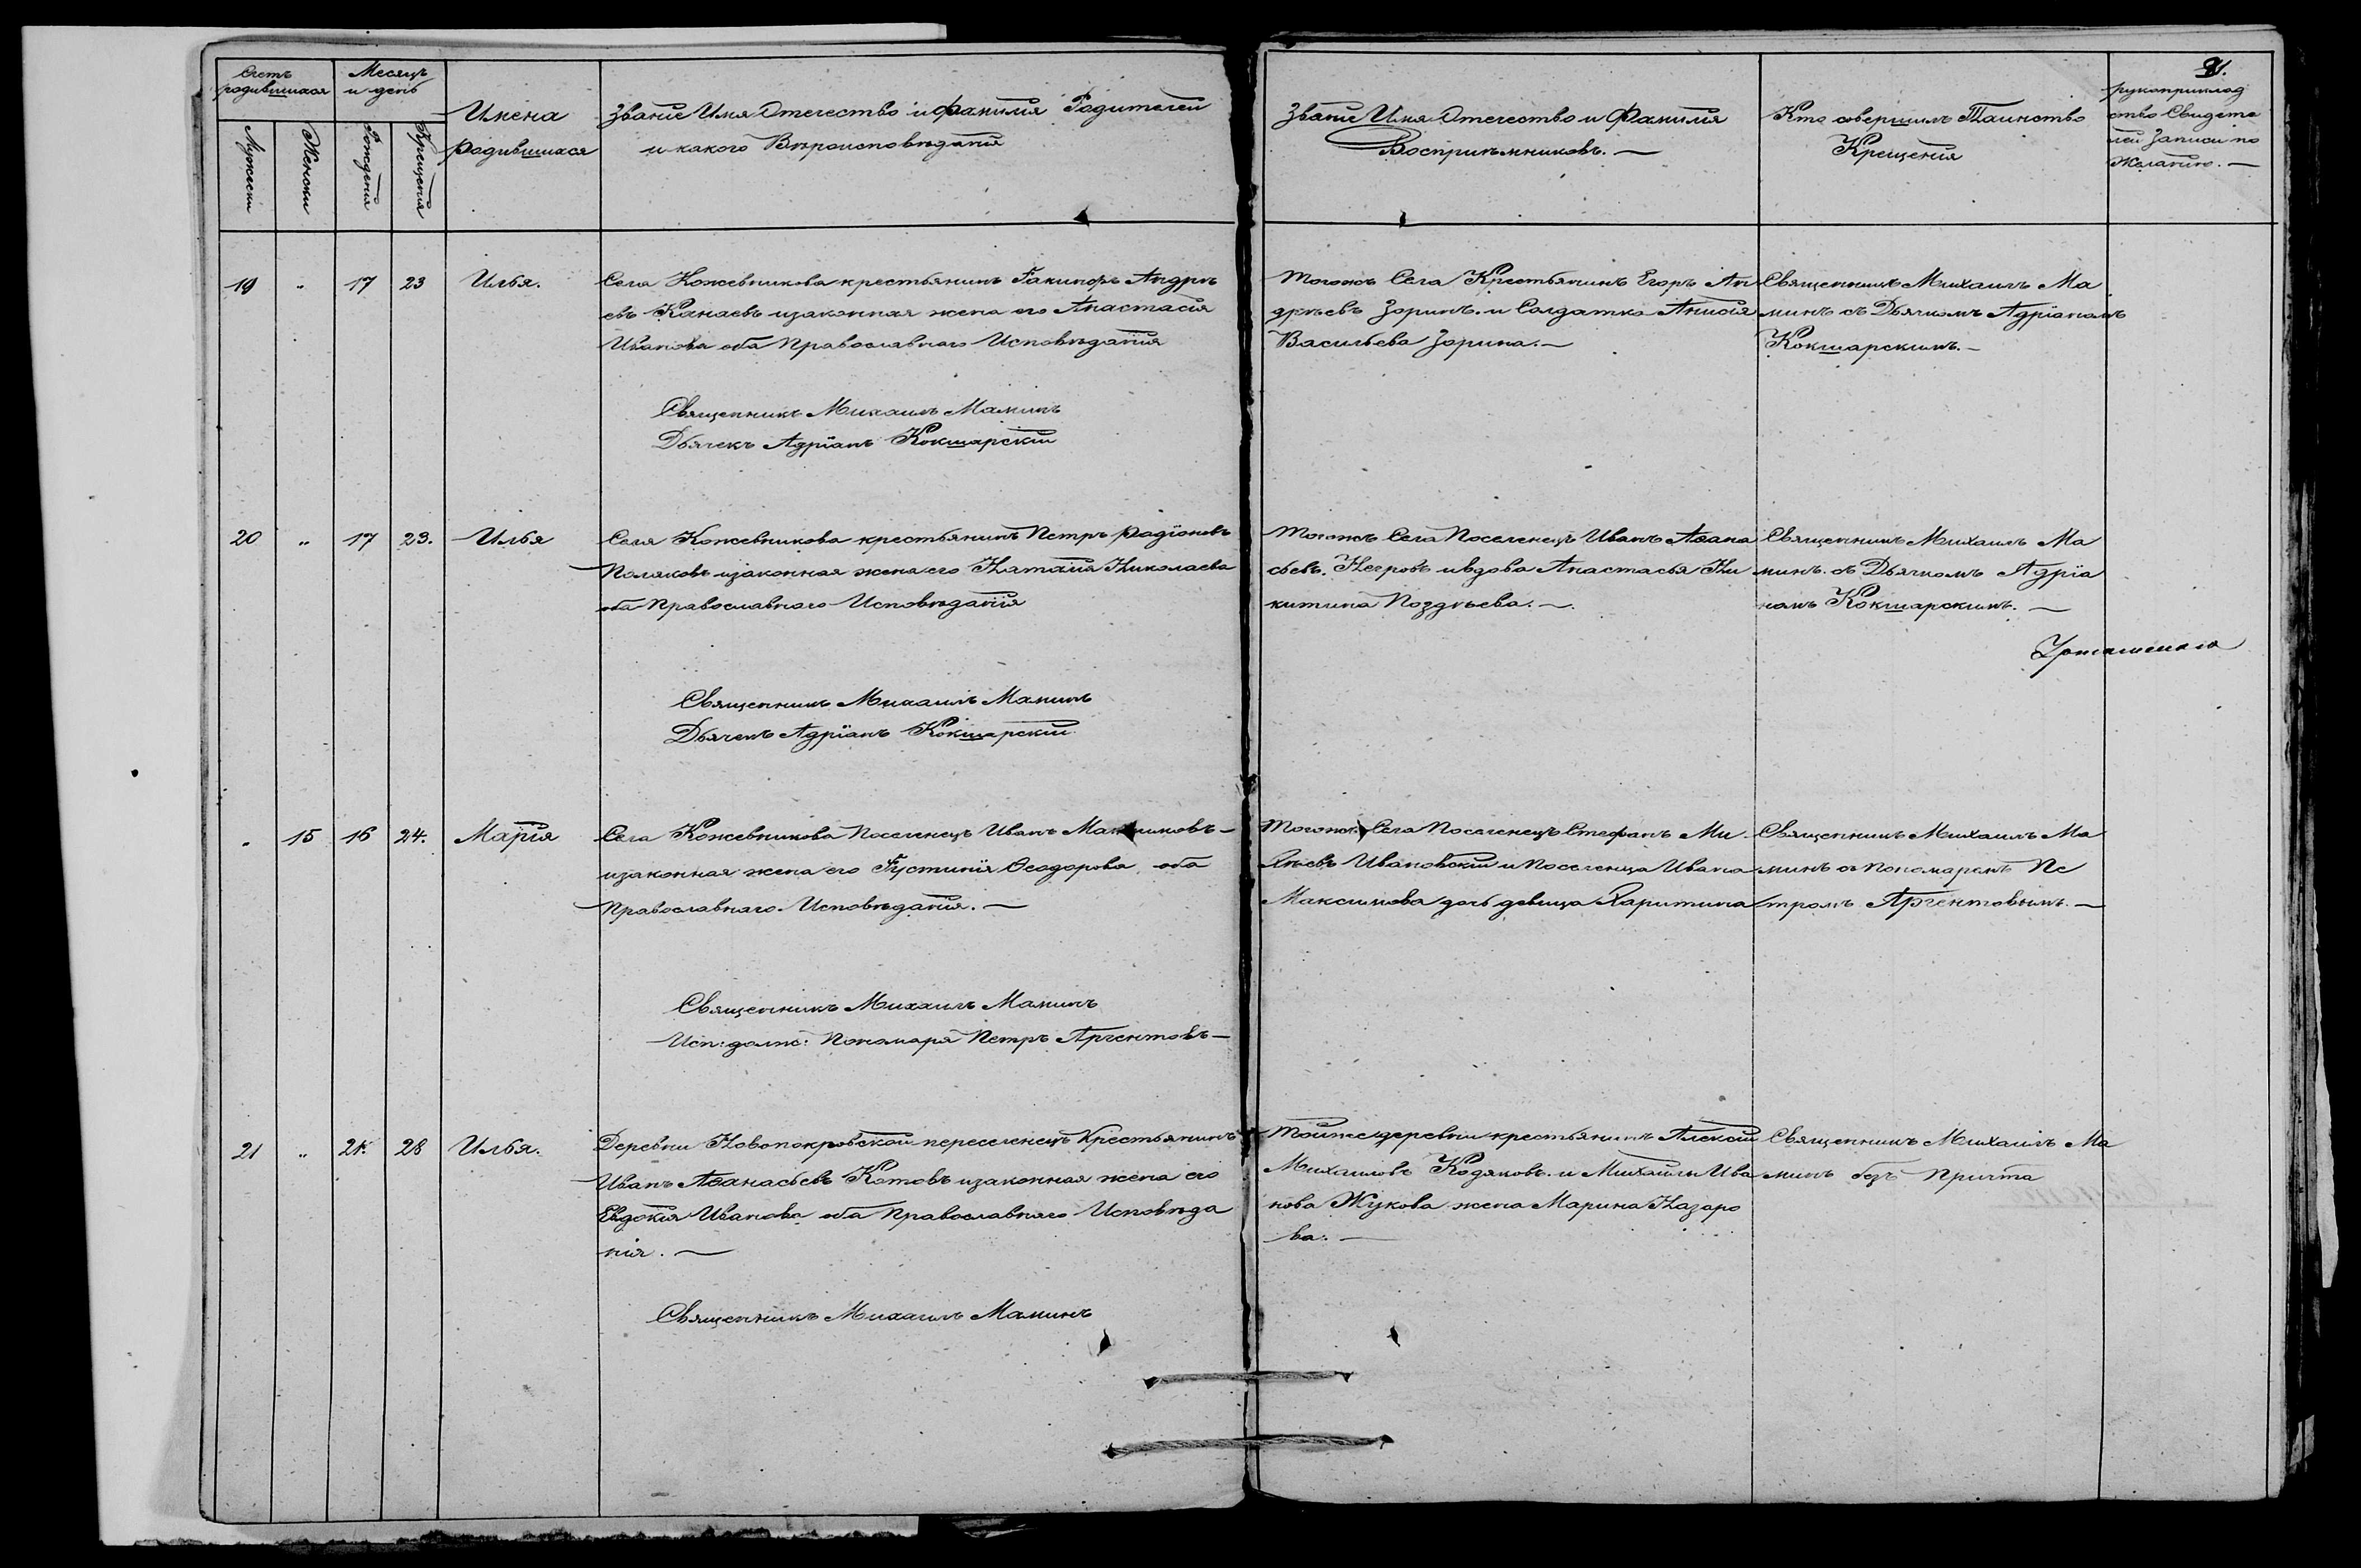 Счетъ
родившихся
Мужески
Женски
Месяцъ
и день
Рождения
Крещения
Имена
Родившихся
Званіе Имя Отечество и Фамилія Родителей
и какого Вѣроисповѣданія
Званіе Имя Отечество и Фамилія
Воспріемниковъ. —
Кто совершилъ Таинство
Крещенія
рукоприклад
ство Свидете
лей Записи по
Желанію. —
19 " 17 23 Илья.
Села Кожевникова крестьянинъ Андрѣ
евъ Канаевъ и законная жена его Анастасія
Иванова оба Православнаго Исповѣданія
Священникъ Михаилъ Маминъ
Дьячекъ Адріанъ Кокшарскій
Тогожъ Села Крестьянинъ Егоръ Ан
дрѣевъ Зоринъ. и Солдатка Анисія
Васильева Зорина. —
Священникъ Михаилъ Ма
минъ съ Дьячкомъ Адріаномъ
Кокшарскимъ. —
20 " 17 23. Илья
Села Кожевникова крестьянинъ Петръ Радіоновъ
Поляковъ и законная жена его Наталія Николаева
оба Православнаго Исповѣданія
Священникъ Михаилъ Маминъ
Дьячекъ Адріанъ Кокшарскій
Тогожъ Села Поселенецъ Иванъ Аѳана
сьевъ. Негровъ и вдова Анастасья Ни
китина Поздѣева. —.
Священникъ Михаилъ Ма
минъ. съ Дьячкомъ Адріа
номъ Кокшарскимъ. —
" 15 16 24. Марія
Села Кожевникова Поселенецъ Иванъ
и законная жена его Іустинія Ѳеодорова оба
Православнаго Исповѣданія. —
Священникъ Михаилъ Маминъ
Исп: долж: Пономаря Петръ Аргентовъ —
Тогожъ Села Поселенецъ Стефанъ Ми
хѣевъ Ивановскій и Поселенца Ивана
Максимова дочь девица Харитина
Священникъ Михаилъ Ма
минъ съ Пономаремъ Пе
тромъ Аргентовымъ. —
21 " 21. 28 Илья.
Деревни Новопокровской переселенецъ Крестьянинъ
Иванъ Аѳанасьевъ Котовъ и законная жена его
Евдокія Иванова оба Православнаго Исповѣда
нія. —
Священникъ Михаилъ Маминъ
Тойже деревни крестьянинъ Алексѣй
Михаиловъ Кодяковъ. и Михаилы Ива
нова Жукова жена Марина Назаро
ва. —
Священникъ Михаилъ Ма
минъ безъ Причта